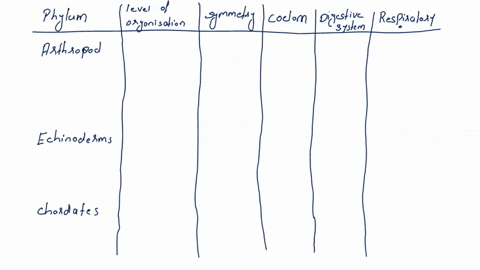 Phylum level of organisation Symmetry Coelom Digestive system Respiratory
Arthropod
Echinoderms
Chordates